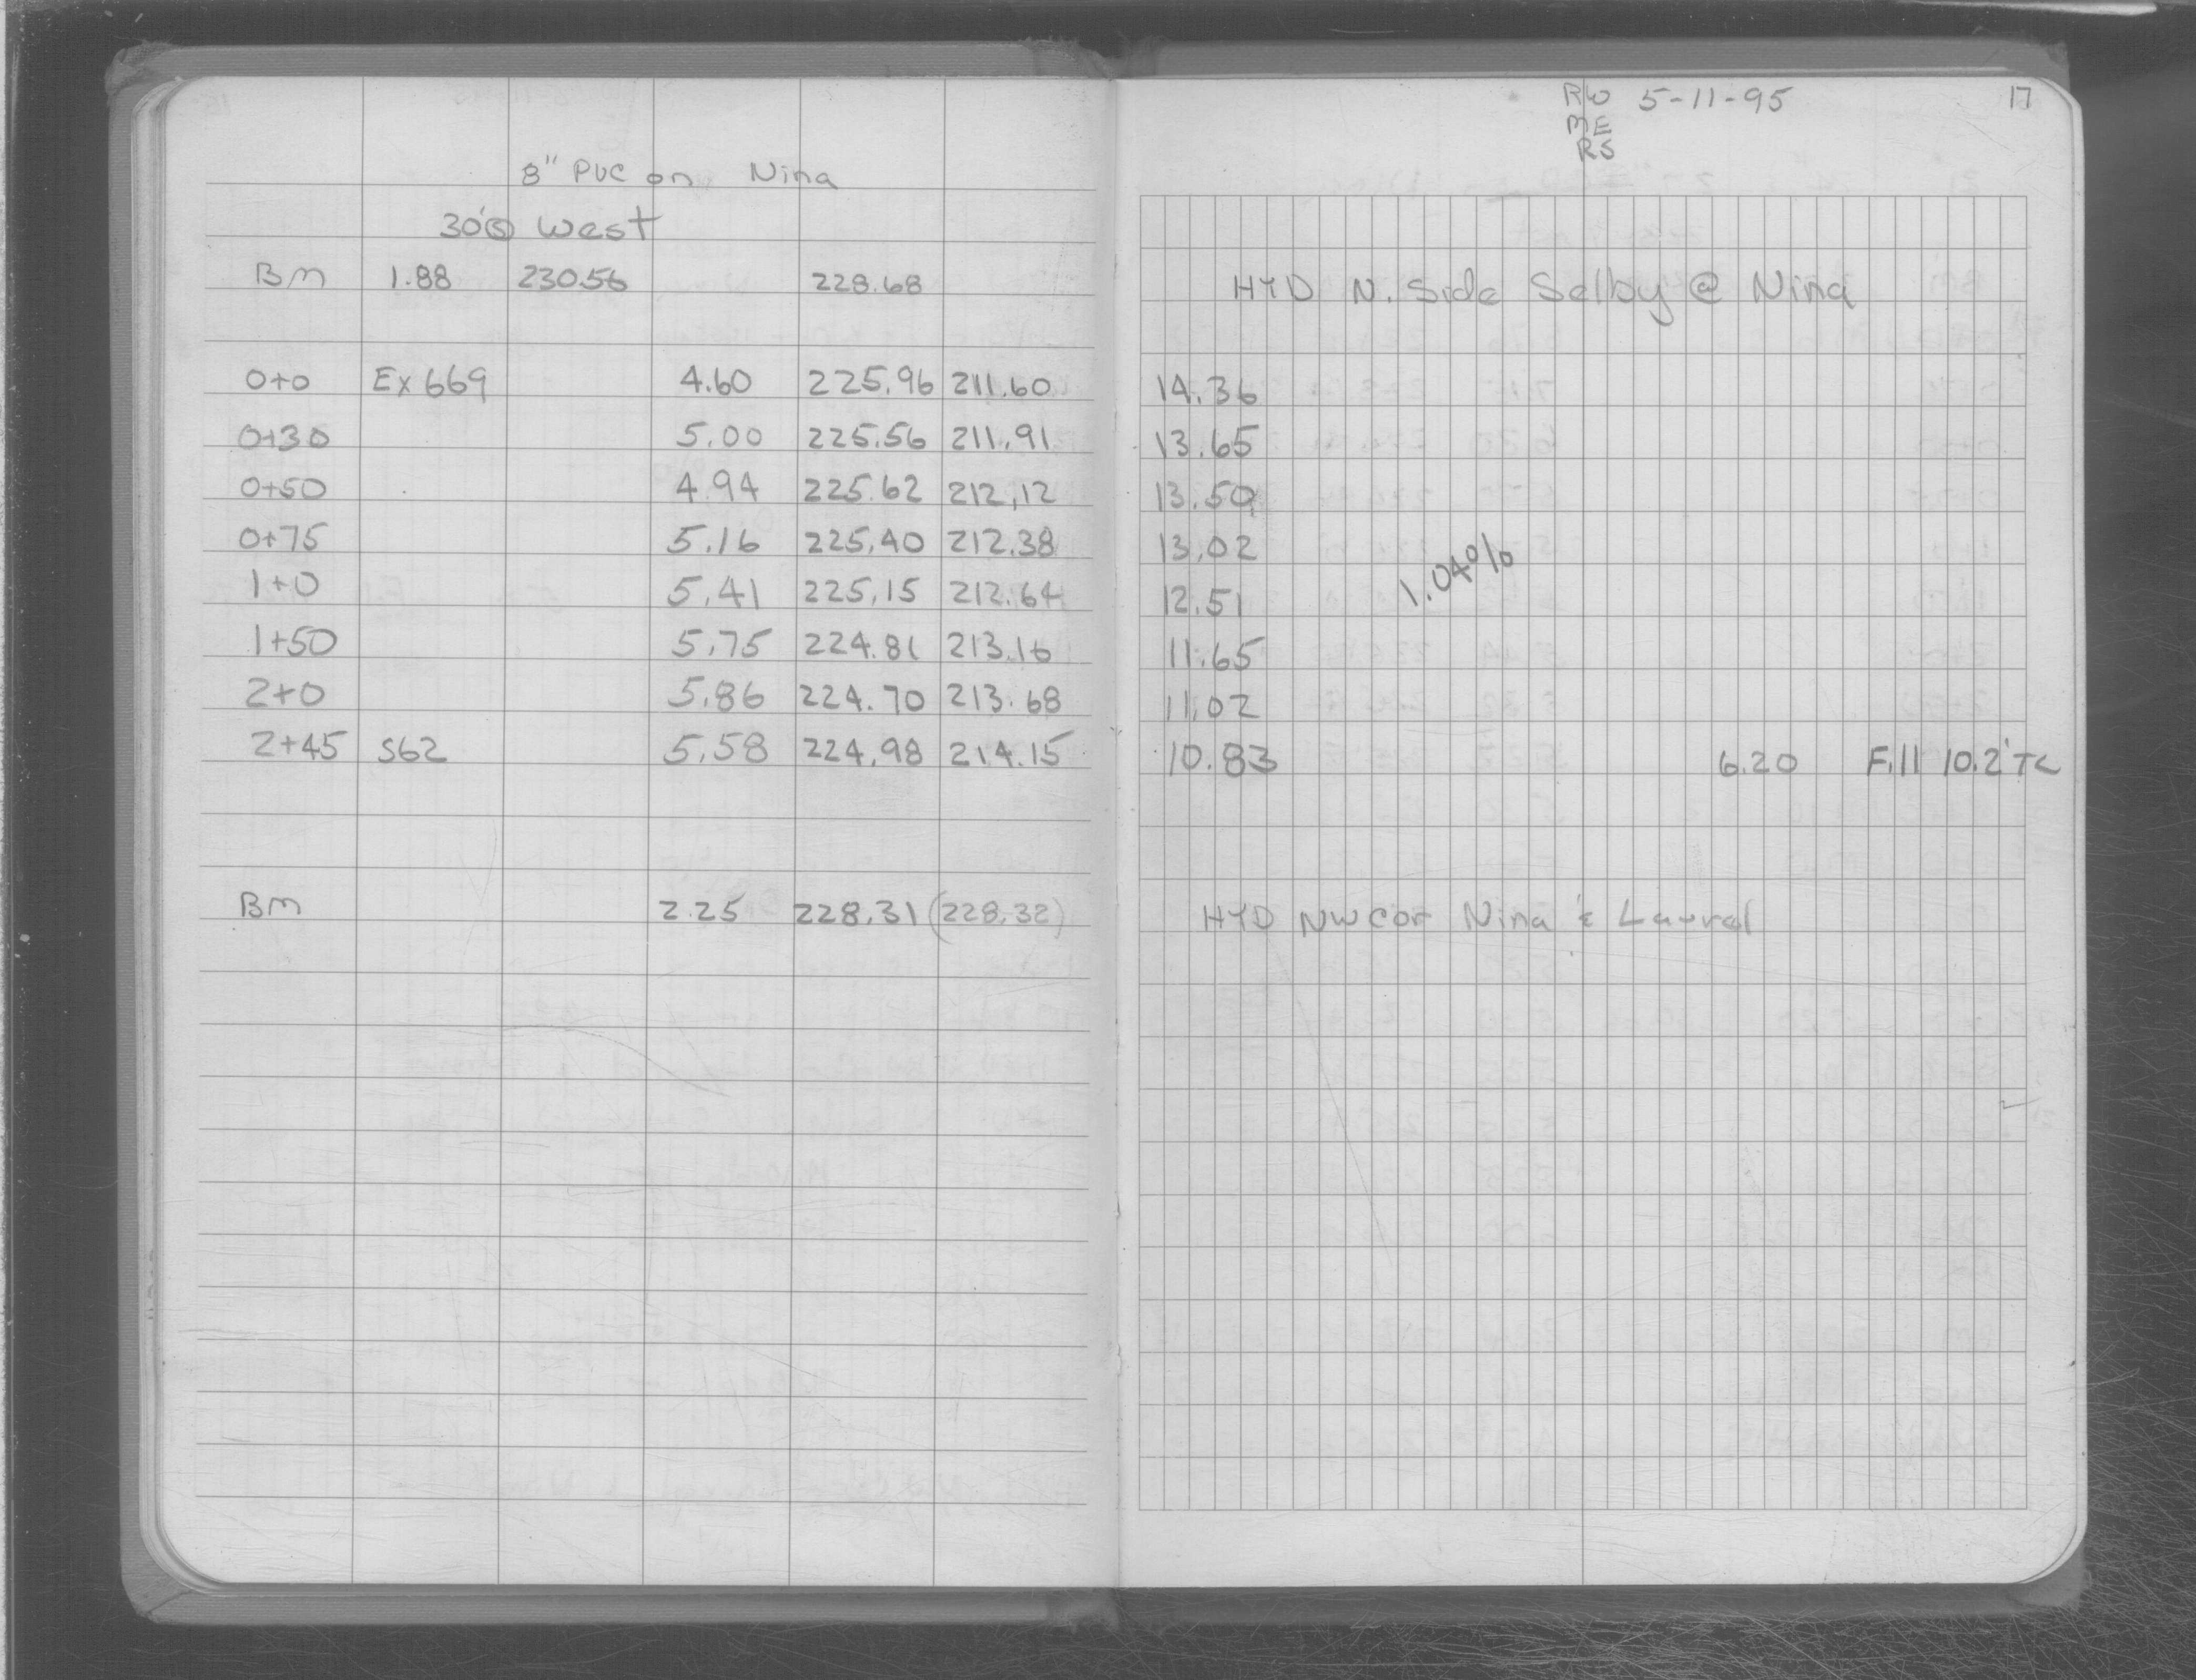 8" PVC on Nina
30'Ⓢ West
BM 1.88 230.56 228.68
0+0 Ex 669 4.60 225.96 211.60
0+30 5.00 225.56 211.91
0+50 4.94 225.62 212.12
0+75 5.16 225.40 212.38
1+0 5.41 225.15 212.64
1+50 5.75 224.81 213.16
2+0 5.86 224.70 213.68
2+45 S62 5.58 224.98 214.15
BM 2.25 228.31 (228.32)
RW 5-11-95 17
ME
RS
HYD N. Side Selby @ Nina
14.36
13.65
13.50
13.02
1.04%
12.51
11.65
11.02
10.83 6.20 Fill 10.2' TC
HYD NW Cor Nina & Laurel